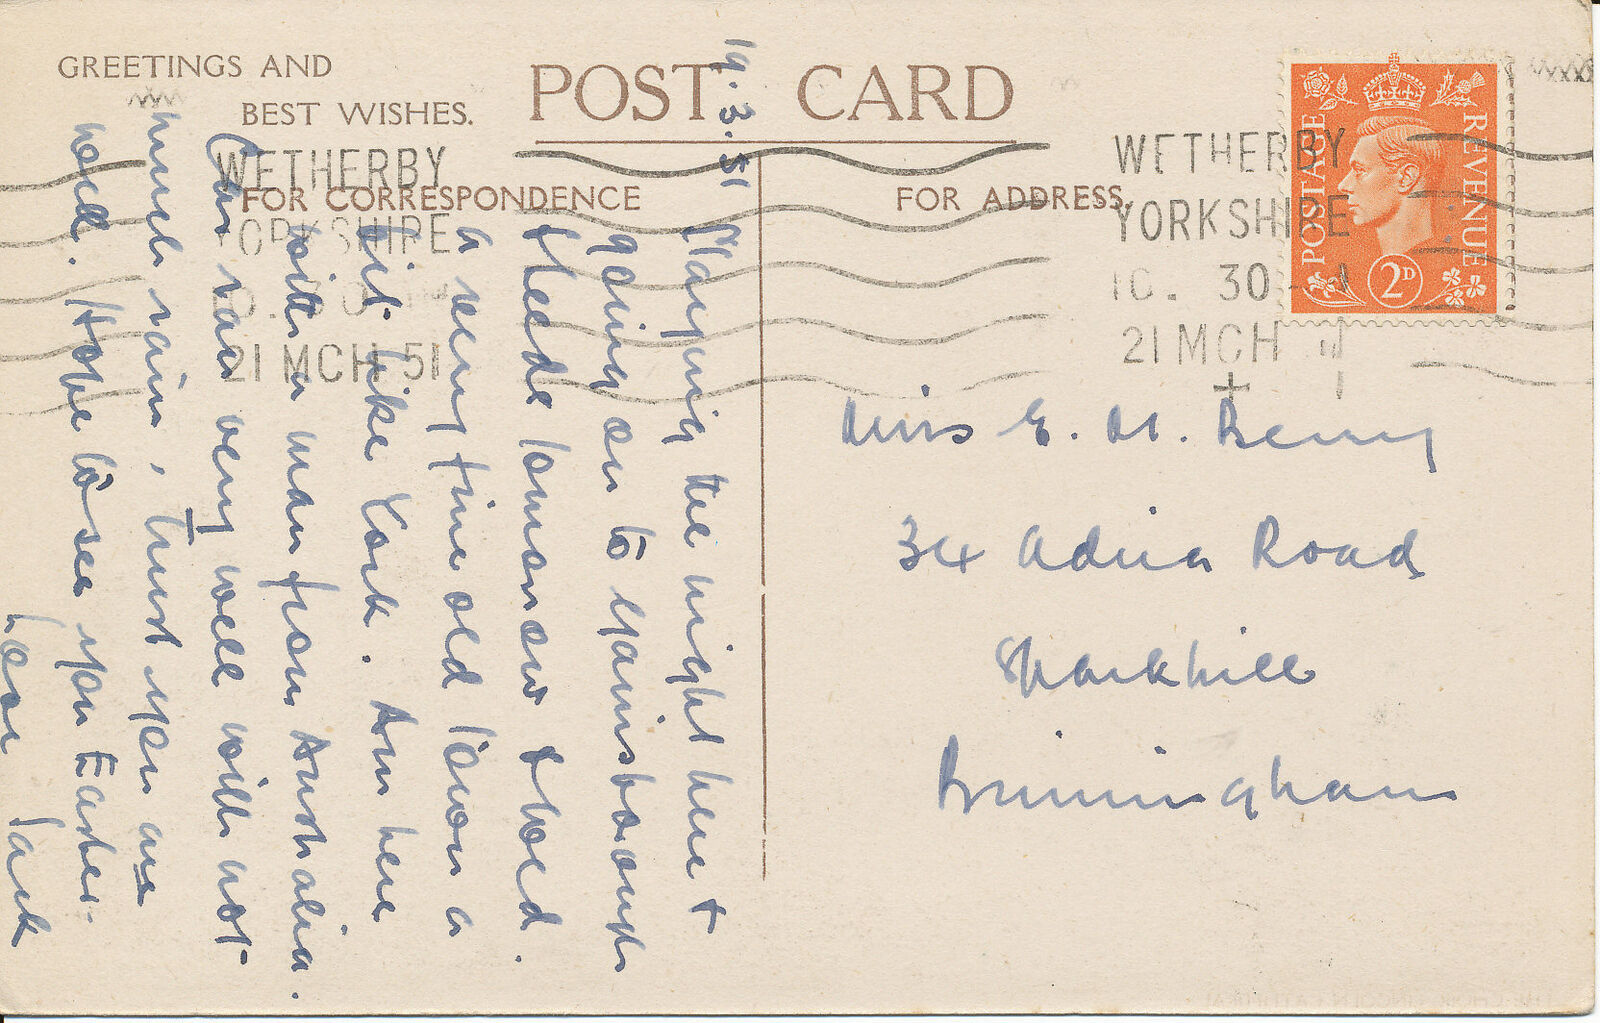 GREETINGS AND
BEST WISHES.
POST CARD
FOR CORRESPONDENCE
FOR ADDRESS.
WETHERBY
YORKSHIRE
10. 30
21 MCH 51
WETHERBY
YORKSHIRE
10. 30
21 MCH
POSTAGE
REVENUE
2D
19.3.51
Staying the night here +
going on to Gainsborough
Leeds tomorrow +
a very fine old town a
bit like York. Am here
with a man from Australia.
Car ran very well with not
much rain, trust you are
well. Hope to see you Easter.
Love Jack
Miss E. M. Berry
34 Adria Road
Sparkhill
Birmingham